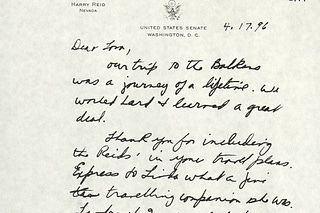 HARRY REID
NEVADA
UNITED STATES SENATE
WASHINGTON, D. C.
4.17.96
Dear Tom,
our trip to the Balkans
was a journey of a lifetime. We
worked hard & learned a great
deal.
Thank you for including
the Reids' in your travel plans.
Express to Linda what a fine
travelling companion she was.